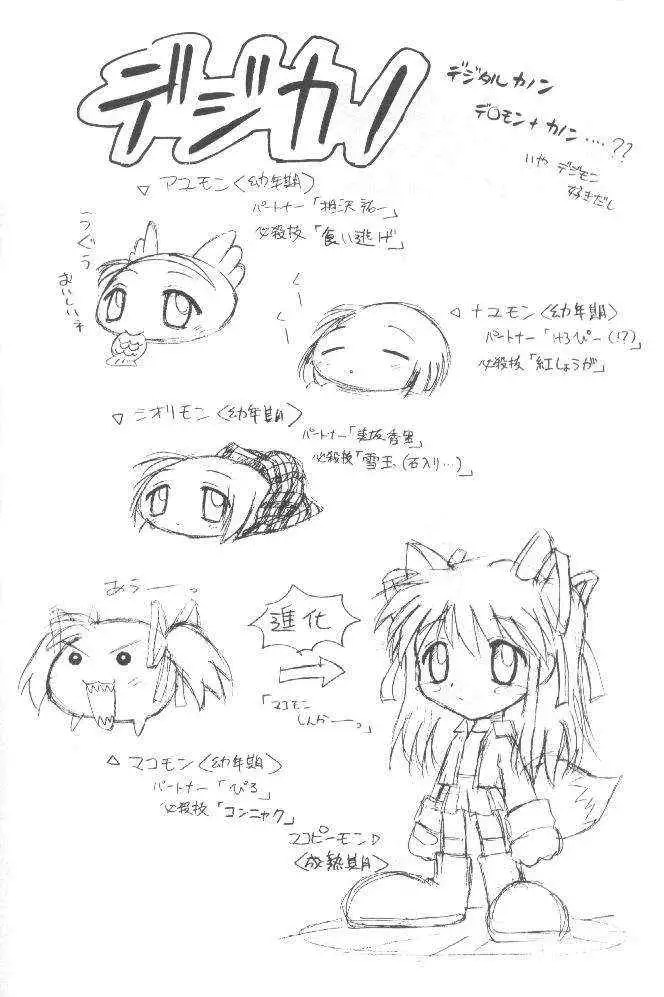 デジカノ
デジタルカノン
デ○モン+カノン....??
いや デジモン
好きだし
▽ アユモン〈幼年期〉
パートナー「相沢祐一」
必殺技「食い逃げ」
うぐぅ
おいしいョ
くー
くー
◁ ナユモン〈幼年期〉
パートナー「けろぴー(17)」
必殺技「紅しょうが」
▽ シオリモン〈幼年期〉
パートナー「美坂香里」
必殺技「雪玉(石入り…)」
あぅーっ
進化
「マコモン
しんかーっ」
△ マコモン〈幼年期〉
パートナー「ぴろ」
必殺技「コンニャク」
マコピーモン▷
〈成熟期〉